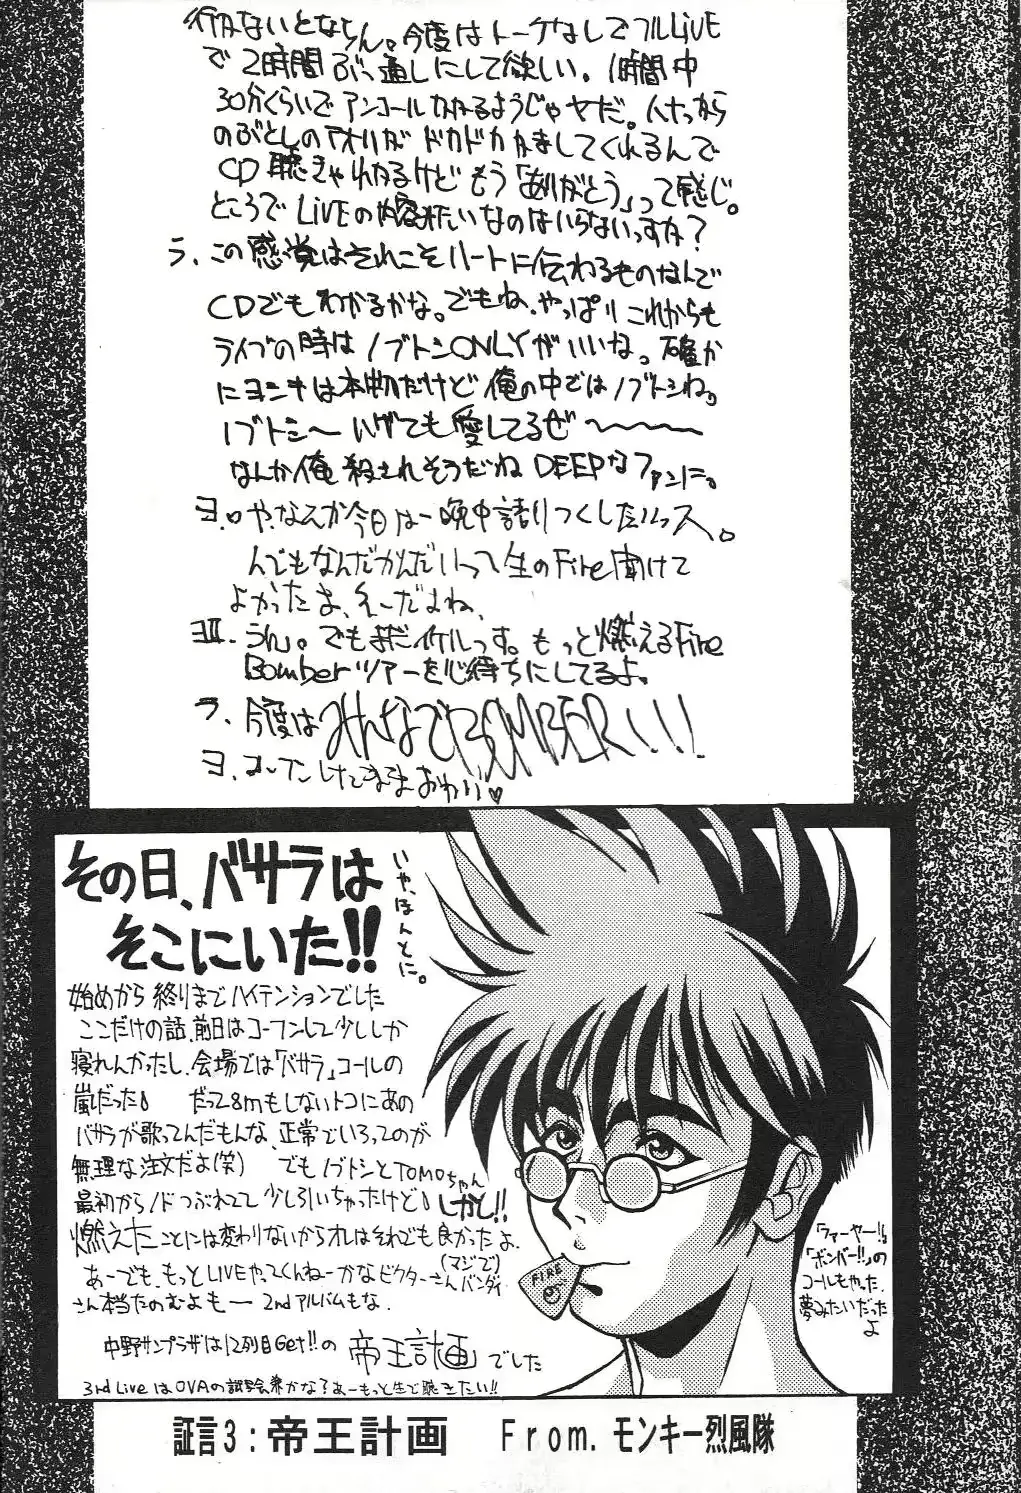 行かないとならん。今度はトークなしでフルLiVE
で2時間ぶっ通しにして欲しい。1時間中
30分くらいでアンコールかかるようじゃヤだ。
のぶとしの「オリ」が ドカドカかましてくれるんで
CD聴きゃわかるけどもう「ありがとう」って感じ。
ところでLiVEの内容みたいなのはいらないっすか?
ラ. この感覚はそれこそハートに伝わるものなんで
CDでもわかるかな。でもね、やっぱりこれからも
ライブの時はノブトシONLYがいいな。確か
にヨシキは本物だけど俺の中ではノブトシね。
ノブトシ〜 ハゲても愛してるぜ〜〜〜
なんか俺殺されそうだね DEEPなファンに。
ヨ. や、なんか今日は一晩中語りつくしたいっス。
んでもなんだかんだいって生のFire聞けて
よかったよ、えーだよね、
ヨII. うん。でもまだイケルっす。もっと燃えるFire
Bomberツアーを心待ちにしてるよ。
ラ. 今度はみんなでBOMBER!!!
ヨ. コーフンしてきたままおわり♥
その日、バサラは
そこにいた!!
いや、ほんとに。
始めから終りまでハイテンションでした
ここだけの話、前日はコーフンして少ししか
寝れんかったし、会場では「バサラ」コールの
嵐だった! だって8mもしないトコにあの
バサラが歌ってんだもんな、正常でいろってのが
無理な注文だよ(笑) でもノブトシとTOMOちゃん
最初からノドつぶれてて少し引いちゃったけど! しかし!!
燃えたことには変わりないからオレはそれでも良かったよ.
(マジで)
あーでも、もっとLIVEやってくんねーかなビクターさんバンダイ
さん本当たのむよもー 2ndアルバムもな.
中野サンプラザは12列目Get!!の 帝王計画 でした
3rd LiveはOVAの試写会兼かな?あーもっと生で聴きたい!!
FIRE
「ファーヤー!!」
「ボンバー!!」の
コールもやった.
夢みたいだった
よ
証言3:帝王計画 From.モンキー烈風隊